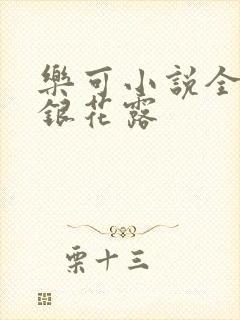 樂可小說全
銀花露
栗十三